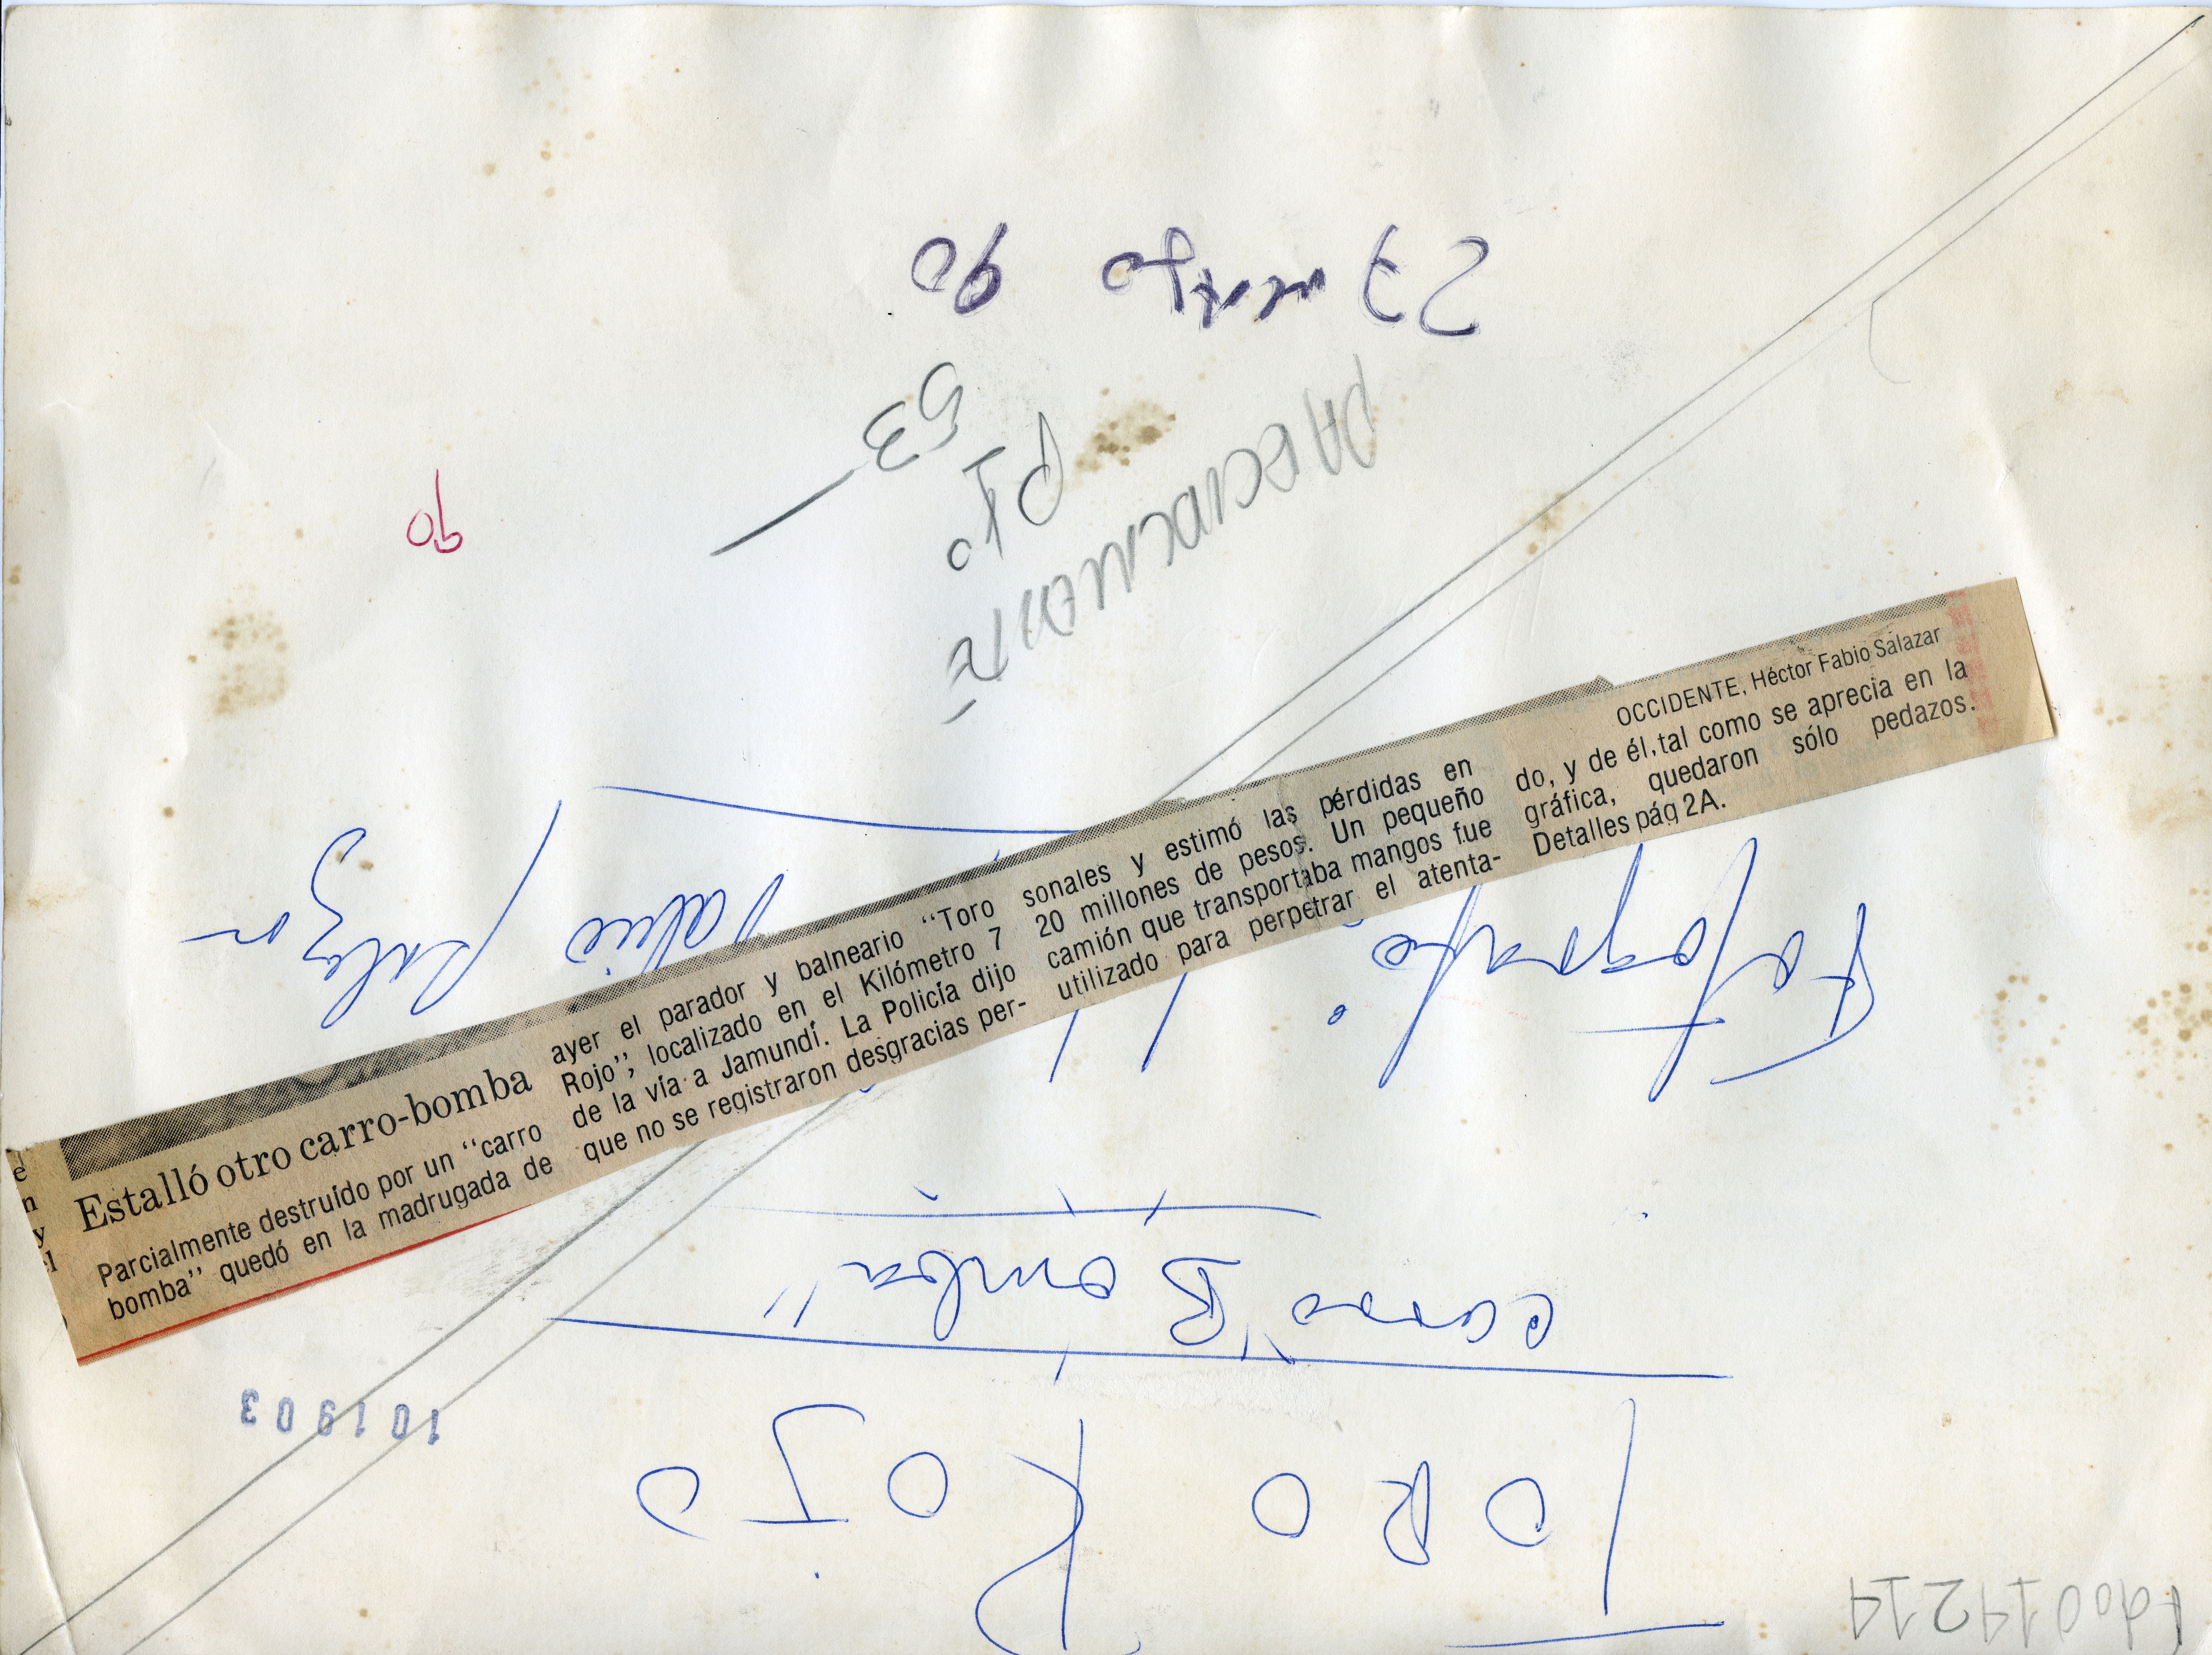 Estalló otro carro-bomba
Parcialmente destruído por un “carro
bomba” quedó en la madrugada de
ayer el parador y balneario “Toro
Rojo”, localizado en el Kilómetro 7
de la vía a Jamundí. La Policía dijo
que no se registraron desgracias per-
sonales y estimó las pérdidas en
20 millones de pesos. Un pequeño
camión que transportaba mangos fue
utilizado para perpetrar el atenta-
OCCIDENTE, Héctor Fabio Salazar
do, y de él, tal como se aprecia en la
gráfica, quedaron sólo pedazos.
Detalles pág 2A.
e
n
y
l
TORO ROJO
carro "Bomba"
Fotografía:
Fabio Salazar
101903
90
53
PTO
27 mayo 90